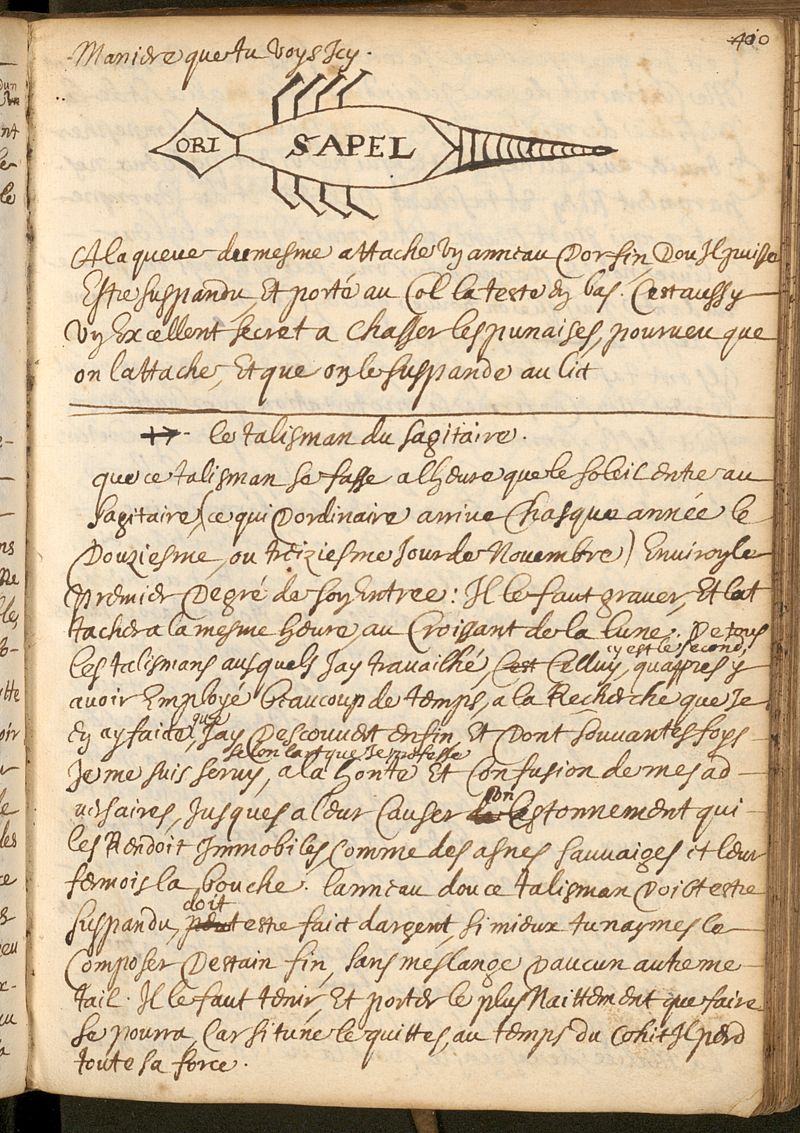 400
Maniere que tu voys Icy.
ORI SAPEL
A la queue du mesme attache vn anneau Dor fin Dou Il puisse
Estre suspandu Et porté au Col la teste En bas. C'est aussy
vn Excellent secret a chasser les punaises, pourveu que
on lattache, Et que on le suspande au lict
le talisman du sagitaire.
que ce talisman se fasse a lheure que le soleil entre au
sagitaire, (ce qui Dordinaire arrive Chasque année le
Douziesme, ou treiziesme Jour de Novembre) Enuiron le
premier Degré de son Entree: Il le faut graver, Et lat
tacher a la mesme heure, au Croissant de la lune. De tous
cy est le second,
les talismans ausquels Jay travailhé, C'est Celluy, qu'apres y
avoir Employé beaucoup de temps, a la Recherche que Je
que
En ay faite, Jay Descouvert enfin, Et Dont souvantesfoys
selon lart que Je professe
Je me suis servy, a la honte Et Confusion de mes ad
versaires, Jusques a leur Causer un Estonnement qui
les Rendoit Immobiles, Comme des asnes sauvaiges et leur
fermois la bouche. lanneau dou ce talisman Doibt estre
doit
suspandu, peut estre faict dargent, si mieux tu naymes le
Composer Destain fin, sans meslange Daucun autre me
tail. Il le faut tenir, Et porter le plus Naittement que faire
se pourra, Car si tu ne le quittes, au temps du Cohit Il perd
toute sa force.